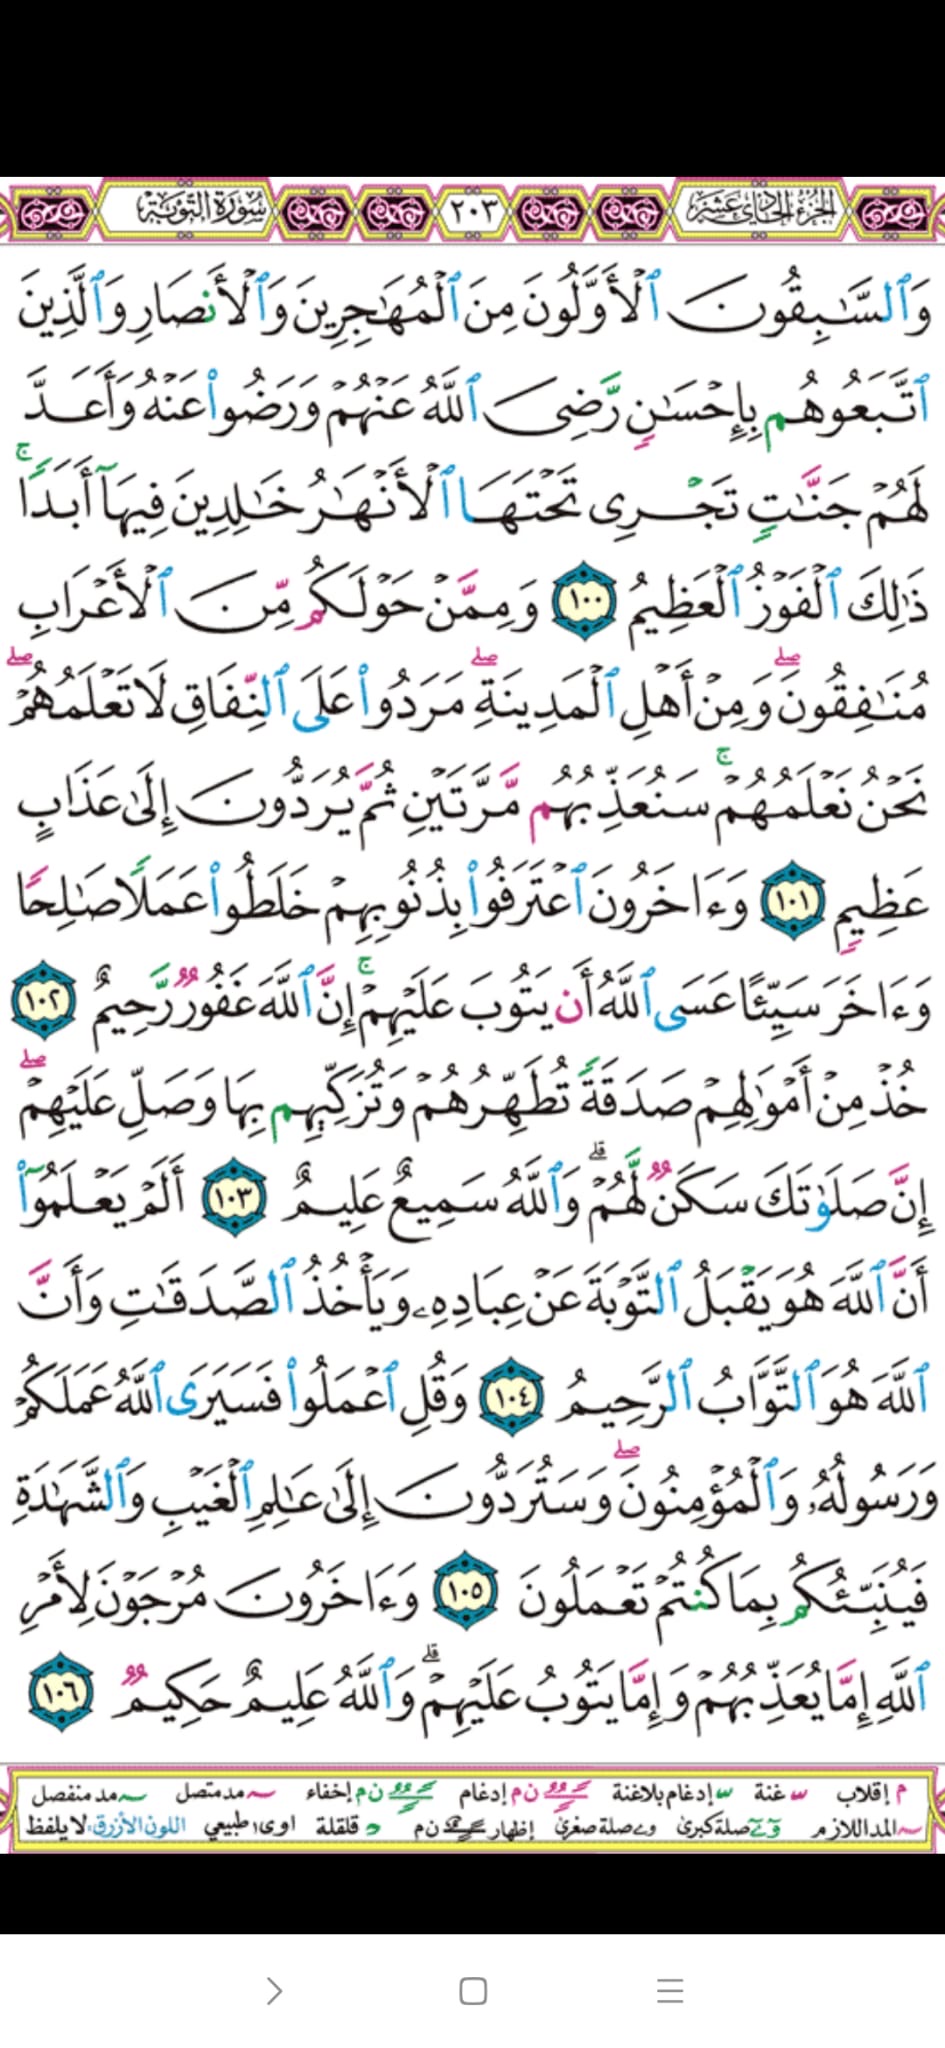 الجزء الحادي عشر ٢٠٣ سورة التوبة
وَٱلسَّٰبِقُونَ ٱلْأَوَّلُونَ مِنَ ٱلْمُهَٰجِرِينَ وَٱلْأَنصَارِ وَٱلَّذِينَ
ٱتَّبَعُوهُم بِإِحْسَٰنٍ رَّضِىَ ٱللَّهُ عَنْهُمْ وَرَضُوا۟ عَنْهُ وَأَعَدَّ
لَهُمْ جَنَّٰتٍ تَجْرِى تَحْتَهَا ٱلْأَنْهَٰرُ خَٰلِدِينَ فِيهَآ أَبَدًا ۚ
ذَٰلِكَ ٱلْفَوْزُ ٱلْعَظِيمُ ١٠٠ وَمِمَّنْ حَوْلَكُم مِّنَ ٱلْأَعْرَابِ
مُنَٰفِقُونَ ۖ وَمِنْ أَهْلِ ٱلْمَدِينَةِ ۖ مَرَدُوا۟ عَلَى ٱلنِّفَاقِ لَا تَعْلَمُهُمْ ۖ
نَحْنُ نَعْلَمُهُمْ ۚ سَنُعَذِّبُهُم مَّرَّتَيْنِ ثُمَّ يُرَدُّونَ إِلَىٰ عَذَابٍ
عَظِيمٍ ١٠١ وَءَاخَرُونَ ٱعْتَرَفُوا۟ بِذُنُوبِهِمْ خَلَطُوا۟ عَمَلًا صَٰلِحًا
وَءَاخَرَ سَيِّئًا عَسَى ٱللَّهُ أَن يَتُوبَ عَلَيْهِمْ ۚ إِنَّ ٱللَّهَ غَفُورٌ رَّحِيمٌ ١٠٢
خُذْ مِنْ أَمْوَٰلِهِمْ صَدَقَةً تُطَهِّرُهُمْ وَتُزَكِّيهِم بِهَا وَصَلِّ عَلَيْهِمْ ۖ
إِنَّ صَلَوٰتَكَ سَكَنٌ لَّهُمْ ۗ وَٱللَّهُ سَمِيعٌ عَلِيمٌ ١٠٣ أَلَمْ يَعْلَمُوٓا۟
أَنَّ ٱللَّهَ هُوَ يَقْبَلُ ٱلتَّوْبَةَ عَنْ عِبَادِهِۦ وَيَأْخُذُ ٱلصَّدَقَٰتِ وَأَنَّ
ٱللَّهَ هُوَ ٱلتَّوَّابُ ٱلرَّحِيمُ ١٠٤ وَقُلِ ٱعْمَلُوا۟ فَسَيَرَى ٱللَّهُ عَمَلَكُمْ
وَرَسُولُهُۥ وَٱلْمُؤْمِنُونَ ۖ وَسَتُرَدُّونَ إِلَىٰ عَٰلِمِ ٱلْغَيْبِ وَٱلشَّهَٰدَةِ
فَيُنَبِّئُكُم بِمَا كُنتُمْ تَعْمَلُونَ ١٠٥ وَءَاخَرُونَ مُرْجَوْنَ لِأَمْرِ
ٱللَّهِ إِمَّا يُعَذِّبُهُمْ وَإِمَّا يَتُوبُ عَلَيْهِمْ ۗ وَٱللَّهُ عَلِيمٌ حَكِيمٌ ١٠٦
م إقلاب غنة إدغام بلاغنة ن م إدغام ن م إخفاء مد متصل مد منفصل
المد اللازم صلة كبرى صلة صغرى إظهار ن م قلقلة اوى طبيعي اللون الأزرق: لا يلفظ